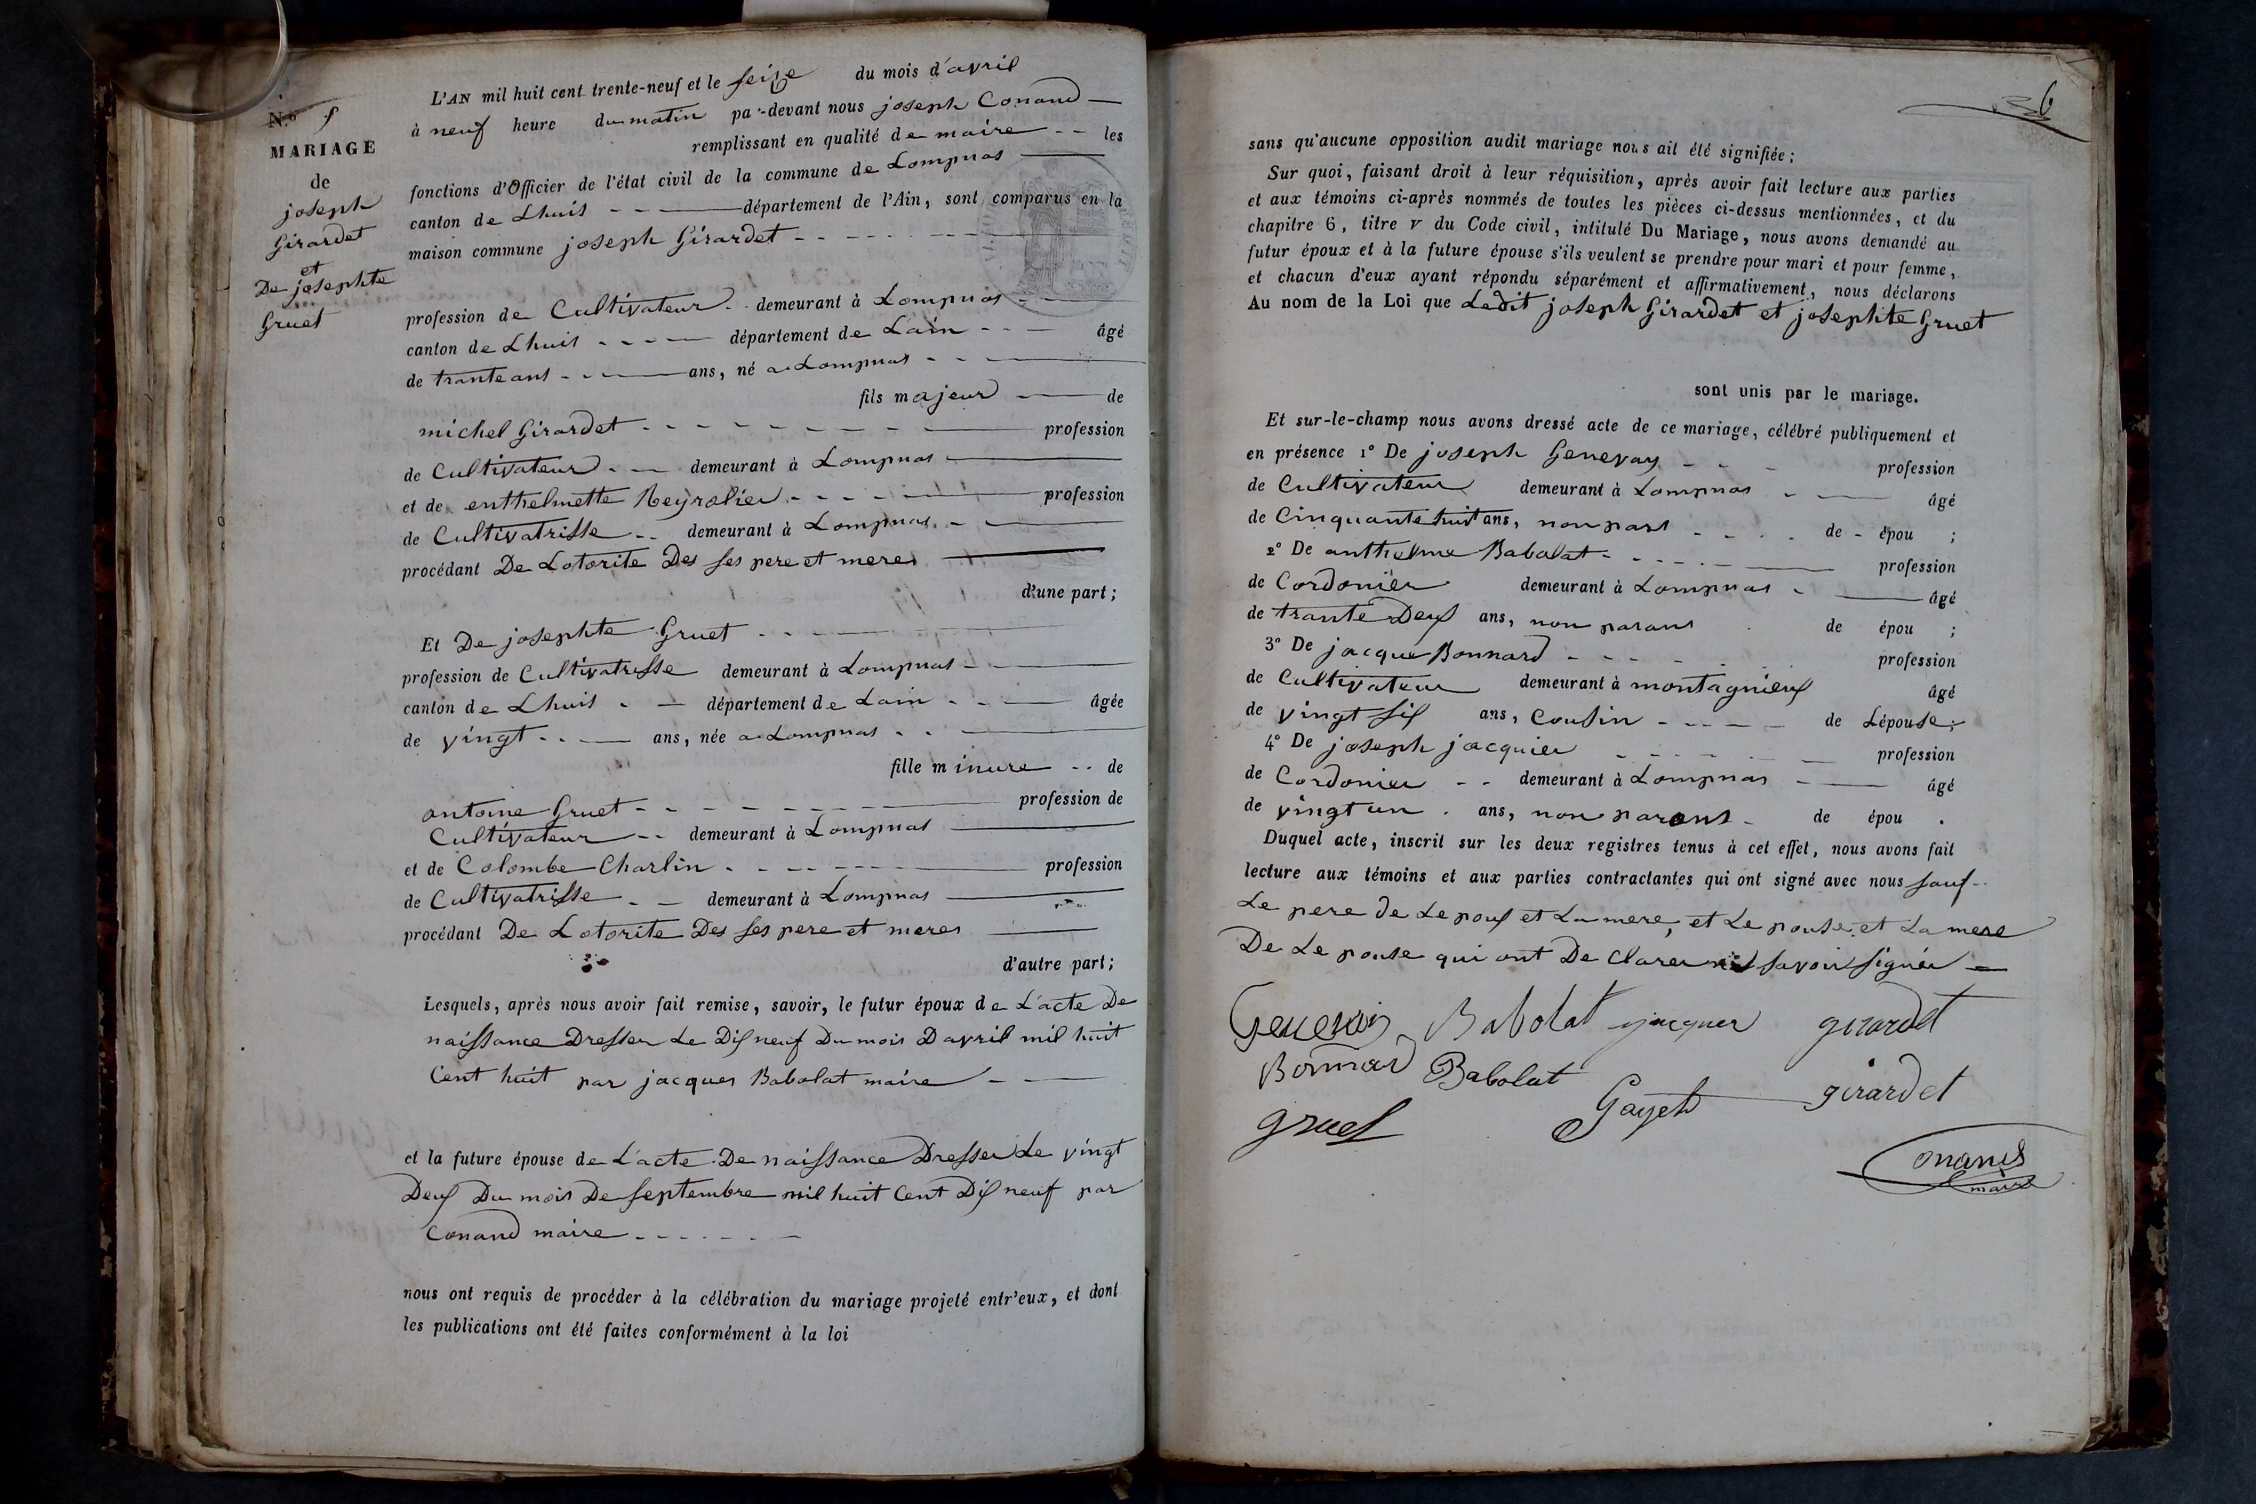 N.o 5
MARIAGE
de
joseph
Girardet
et
De josephte
Gruet
L'AN mil huit cent trente-neuf et le seize du mois d'avril
à neuf heure du matin par-devant nous joseph Conand
remplissant en qualité de maire les
fonctions d'Officier de l'état civil de la commune de Lompnas
canton de Lhuis département de l'Ain, sont comparus en la
maison commune joseph Girardet
profession de Cultivateur demeurant à Lompnas
canton de Lhuis département de Lain âgé
de trante ans ans, né a Lompnas
fils majeur de
michel Girardet profession
de Cultivateur demeurant à Lompnas
et de enthelmette Reyralier profession
de Cultivatrisse demeurant à Lompnas
procédant De Lotorite Des ses pere et meres
d'une part;
Et De josephte Gruet
profession de Cultivatrisse demeurant à Lompnas
canton de Lhuis département de Lain âgée
de vingt ans, née a Lompnas
fille minure de
antoine Gruet profession de
Cultivateur demeurant à Lompnas
et de Colombe Charlin profession
de Cultivatrisse demeurant à Lompnas
procédant De Lotorite Des ses pere et meres
d'autre part;
Lesquels, après nous avoir fait remise, savoir, le futur époux de L'acte De
naissance Dresser Le Dis neuf Du mois D avril mil huit
Cent huit par jacques Babolat maire
et la future épouse de L'acte De naissance Dresser Le vingt
Deus Du mois De septembre mil huit Cent Dis neuf par
Conand maire
nous ont requis de procéder à la célébration du mariage projeté entr'eux, et dont
les publications ont été faites conformément à la loi
6
sans qu'aucune opposition audit mariage nous ait été signifiée;
Sur quoi, faisant droit à leur réquisition, après avoir fait lecture aux parties
et aux témoins ci-après nommés de toutes les pièces ci-dessus mentionnées, et du
chapitre 6, titre V du Code civil, intitulé Du Mariage, nous avons demandé au
futur époux et à la future épouse s'ils veulent se prendre pour mari et pour femme,
et chacun d'eux ayant répondu séparément et affirmativement, nous déclarons
Au nom de la Loi que Ledit joseph Girardet et josephte Gruet
sont unis par le mariage.
Et sur-le-champ nous avons dressé acte de ce mariage, célébré publiquement et
en présence 1° De joseph Genevay profession
de Cultivateur demeurant à Lompnas âgé
de Cinquante huit ans, non part de épou ;
2° De anthelme Babolat profession
de Cordonier demeurant à Lompnas âgé
de trante Deus ans, non parans de épou ;
3° De jacque Bonnard profession
de Cultivateur demeurant à montagnieus âgé
de vingt sis ans, Cousin de Lépouse;
4° De joseph jacquier profession
de Cordonier demeurant à Lompnas âgé
de vingt un ans, non parans de épou .
Duquel acte, inscrit sur les deux registres tenus à cet effet, nous avons fait
lecture aux témoins et aux parties contractantes qui ont signé avec nous sauf
Le pere de Le pous et La mere, et Le pouse et La mere
De Le pouse qui ont De Clarer savoir signér
Genevois Babolat jacquier girardet
Bonnard Babolat Gayet girardet
gruel
Conand
maire